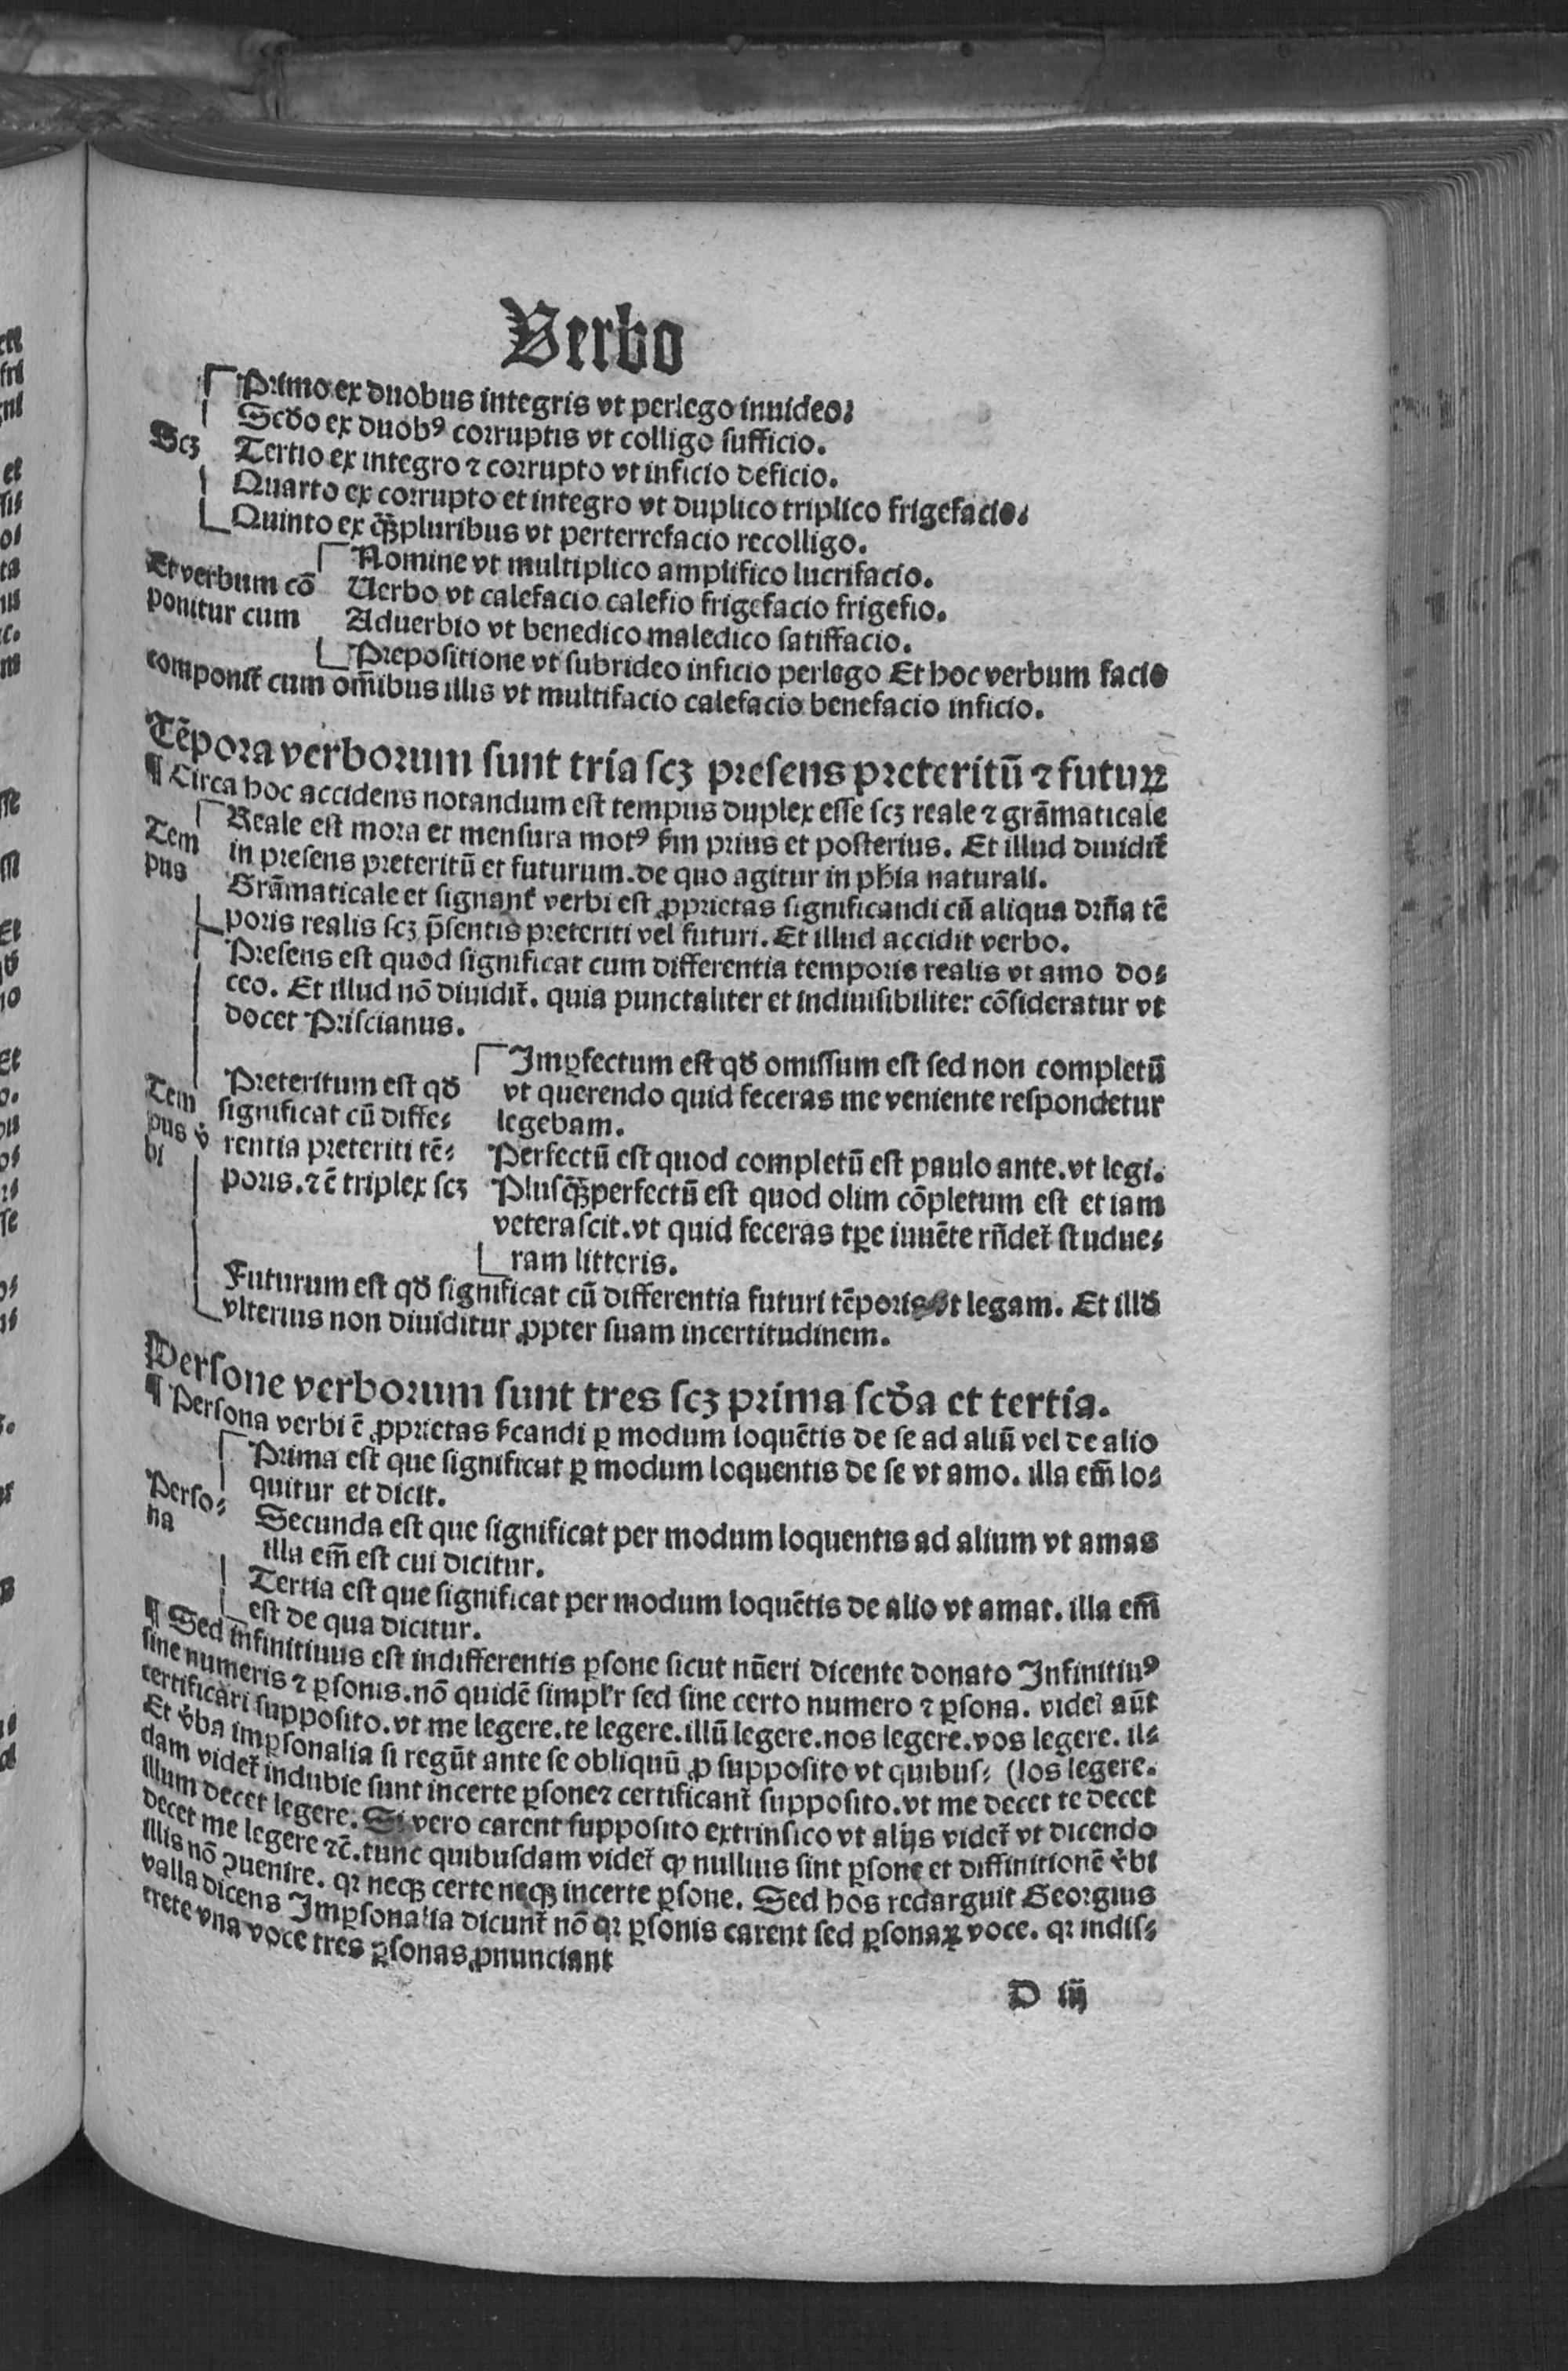 Verbo
Primo ex duobus integris vt perlego inuideo.
Scďo ex duobꝰ corruptis vt colligo sufficio.
Scz Tertio ex integro ⁊ corrupto vt inficio deficio.
Quarto ex corrupto et integro vt duplico triplico frigefacio.
Quinto ex q̄ꝫpluribus vt perterrefacio recolligo.
Nomine vt multiplico amplifico lucrifacio.
Et verbum cō Uerbo vt calefacio calefio frigefacio frigefio.
ponitur cum Aduerbio vt benedico maledico satiffacio.
Prepositione vt subrideo inficio perlego Et hoc verbum facio
componiť cum om̄ibus illis vt multifacio calefacio benefacio inficio.
Tēpora verborum sunt tria scꝫ presens preteritū ⁊ futuꝝ
¶ Circa hoc accidens notandum est tempus duplex esse scꝫ reale ⁊ grāmaticale
Tem Reale est mora et mensura motꝰ ẜm prius et posterius. Et illud diuidiť
pus in presens preteritū et futurum. de quo agitur in pħia naturali.
Grāmaticale et signanť verbi est ꝓprietas significandi cū aliqua dr̄na tē
poris realis scꝫ p̄sentis preteriti vel futuri. Et illud accidit verbo.
Presens est quod significat cum differentia temporis realis vt amo do⸗
ceo. Et illud nō diuidiť. quia punctaliter et indiuisibiliter cōsideratur vt
docet Priscianus.
Imꝑfectum est qď omissum est sed non completū
Tem Preteritum est qď vt querendo quid feceras me veniente respondetur
pus v̓ significat cū diffe⸗ legebam.
bi rentia preteriti tē⸗ Perfectū est quod completū est paulo ante. vt legi.
poris. ⁊ ē triplex scꝫ Plusq̄ꝫperfectū est quod olim cōpletum est et iam
veterascit. vt quid feceras tꝑe iuuēte rn̄deť studue⸗
ram litteris.
Futurum est qď significat cū differentia futuri tēporis vt legam. Et illď
vlterius non diuiditur ꝓpter suam incertitudinem.
Persone verborum sunt tres scꝫ prima scďa et tertia.
¶ Persona verbi ē ꝓprietas ẜcandi ꝑ modum loquētis de se ad aliū vel de alio
Prima est que significat ꝑ modum loquentis de se vt amo. illa em̄ lo⸗
Perso⸗ quitur et dicit.
na Secunda est que significat per modum loquentis ad alium vt amas
illa em̄ est cui dicitur.
Tertia est que significat per modum loquētis de alio vt amat. illa em̄
est de qua dicitur.
¶ Sed infinitiuus est indifferentis ꝑsone sicut nūeri dicente donato Infinitiuꝰ
sine numeris ⁊ ꝑsonis. nō quidē simpłr sed sine certo numero ⁊ ꝑsona. videť aūt
certificari supposito. vt me legere. te legere. illū legere. nos legere. vos legere. il⸗
Et v̓ba imꝑsonalia si regūt ante se obliquū ꝓ supposito vt quibus⸗ (los legere.
dam videť indubie sunt incerte ꝑsone⁊ certificanť supposito. vt me decet te decet
illum decet legere. Si vero carent supposito extrinsico vt alijs videť vt dicendo
decet me legere ⁊c̄. tunc quibusdam videť ꝙ nullius sint ꝑsone et diffinitionē v̓bi
illis nō ↄuenire. qꝛ neqꝫ certe neqꝫ incerte ꝑsone. Sed hos redarguit Georgius
valla dicens Imꝑsonalia dicunť nō qꝛ ꝑsonis carent sed ꝑsonaꝝ voce. qꝛ indis⸗
crete vna voce tres ꝑsonas ꝓnunciant
D iij